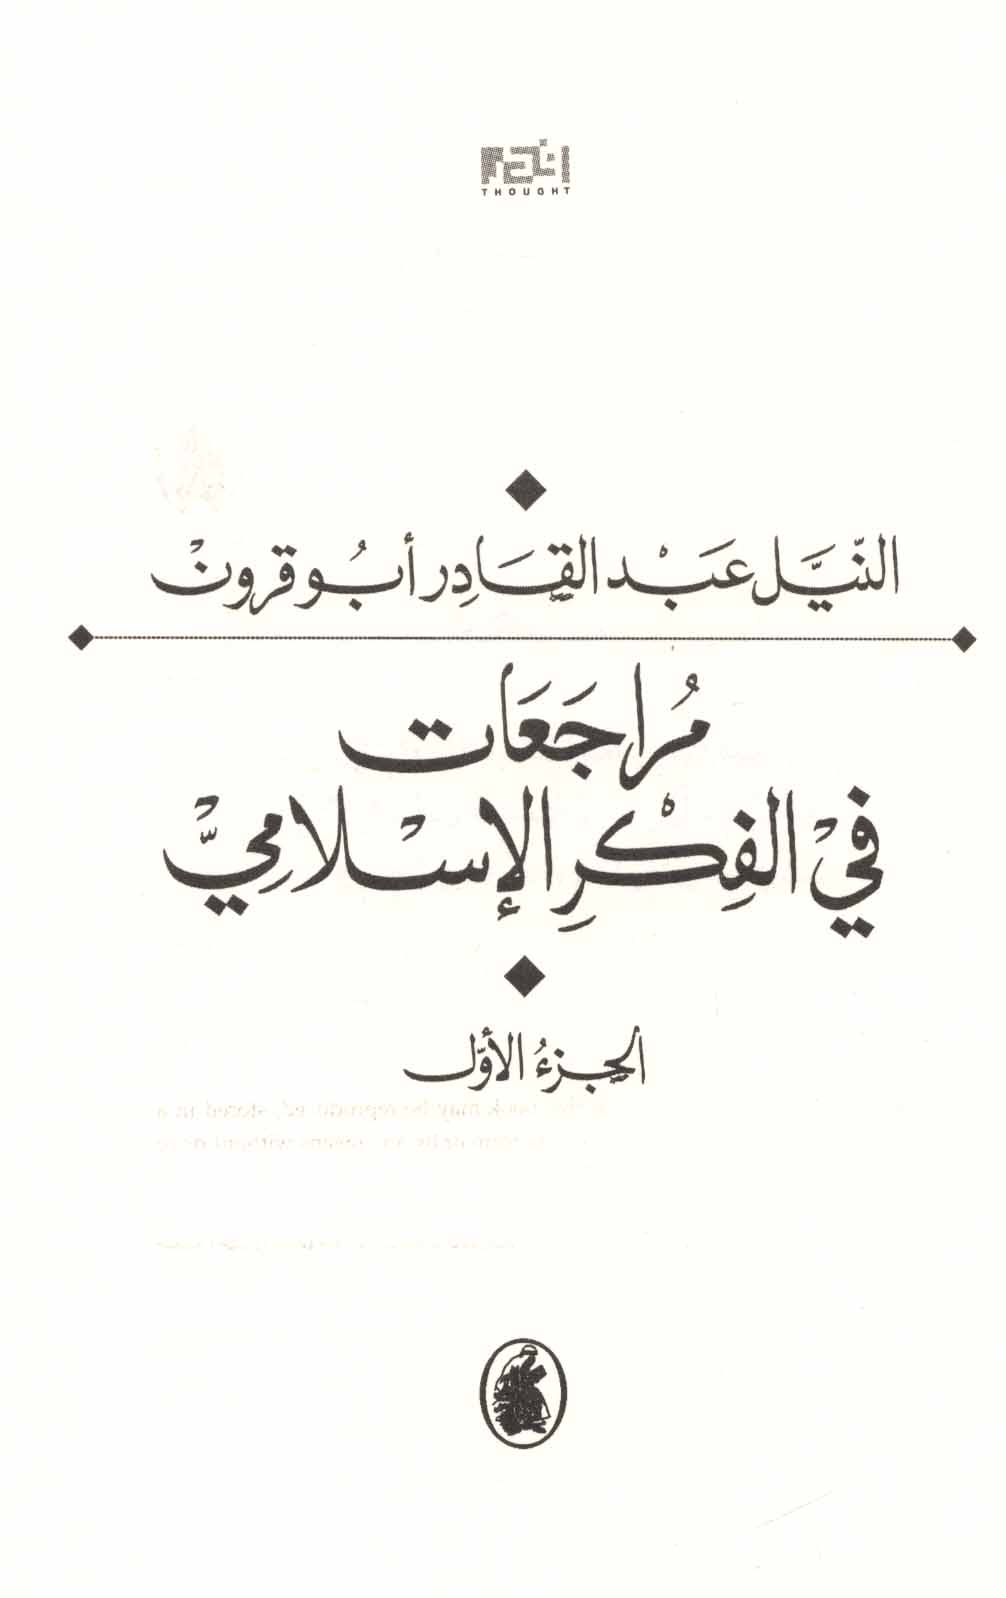 THOUGHT
النّيَّل عَبْد القَادِر أبُو قرونْ
مُراجَعَات
في الفِكْرِ الإسْلامِيّ
الجزءُ الأوّل